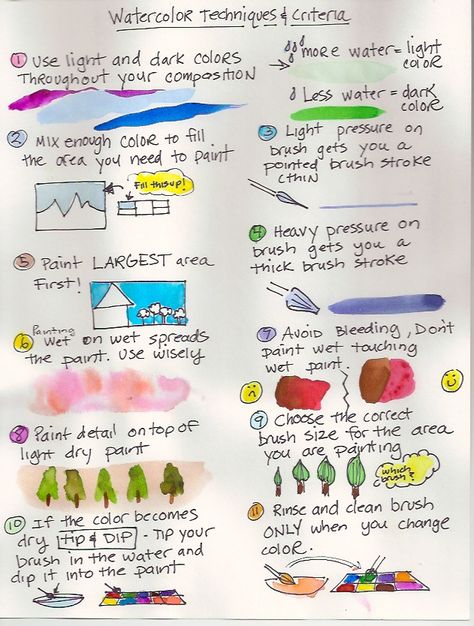 Watercolor Techniques & Criteria
1 Use light and dark colors
Throughout your composition
more water = light
color
Less water = dark
color
2 Mix enough color to fill
the area you need to paint
Fill this up!
3 Light pressure on
brush gets you a
pointed brush stroke
(thin
4 Heavy pressure on
brush gets you a
thick brush stroke
5 Paint LARGEST area
First!
Painting
6 Wet on wet spreads
the paint. Use wisely
7 Avoid Bleeding, Don't
paint wet touching
wet paint.
8 Paint detail on top of
light dry paint
9 Choose the correct
brush size for the area
you are painting
which
brush?
10 If the color becomes
dry Tip & DIP - Tip your
brush in the water and
dip it into the paint
11 Rinse and clean brush
ONLY when you change
color.